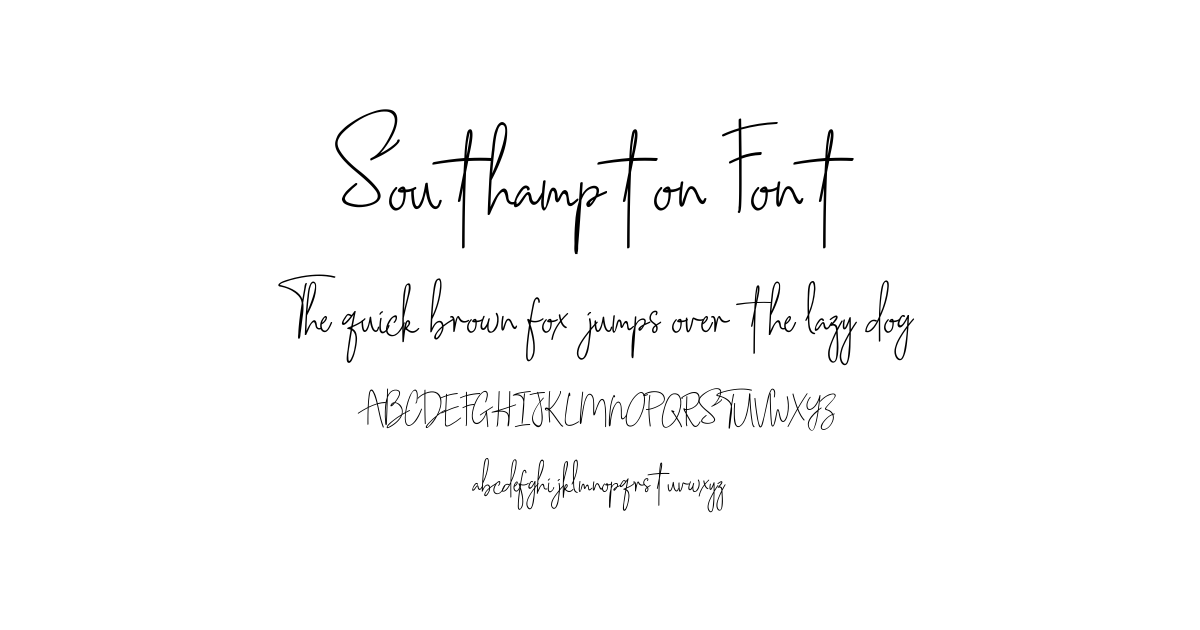 Southampton Font
The quick brown fox jumps over the lazy dog
ABCDEFGHIJKLMNOPQRSTUVWXYZ
abcdefghijklmnopqrstuvwxyz